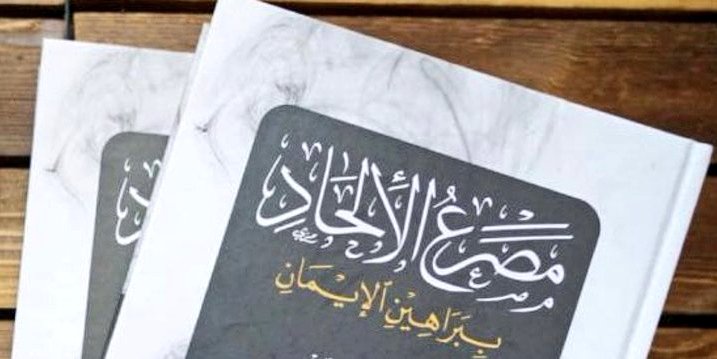 مَصْرَعُ الأَلحَادِ
بِبَرَاهِينِ الإِيمَانِ